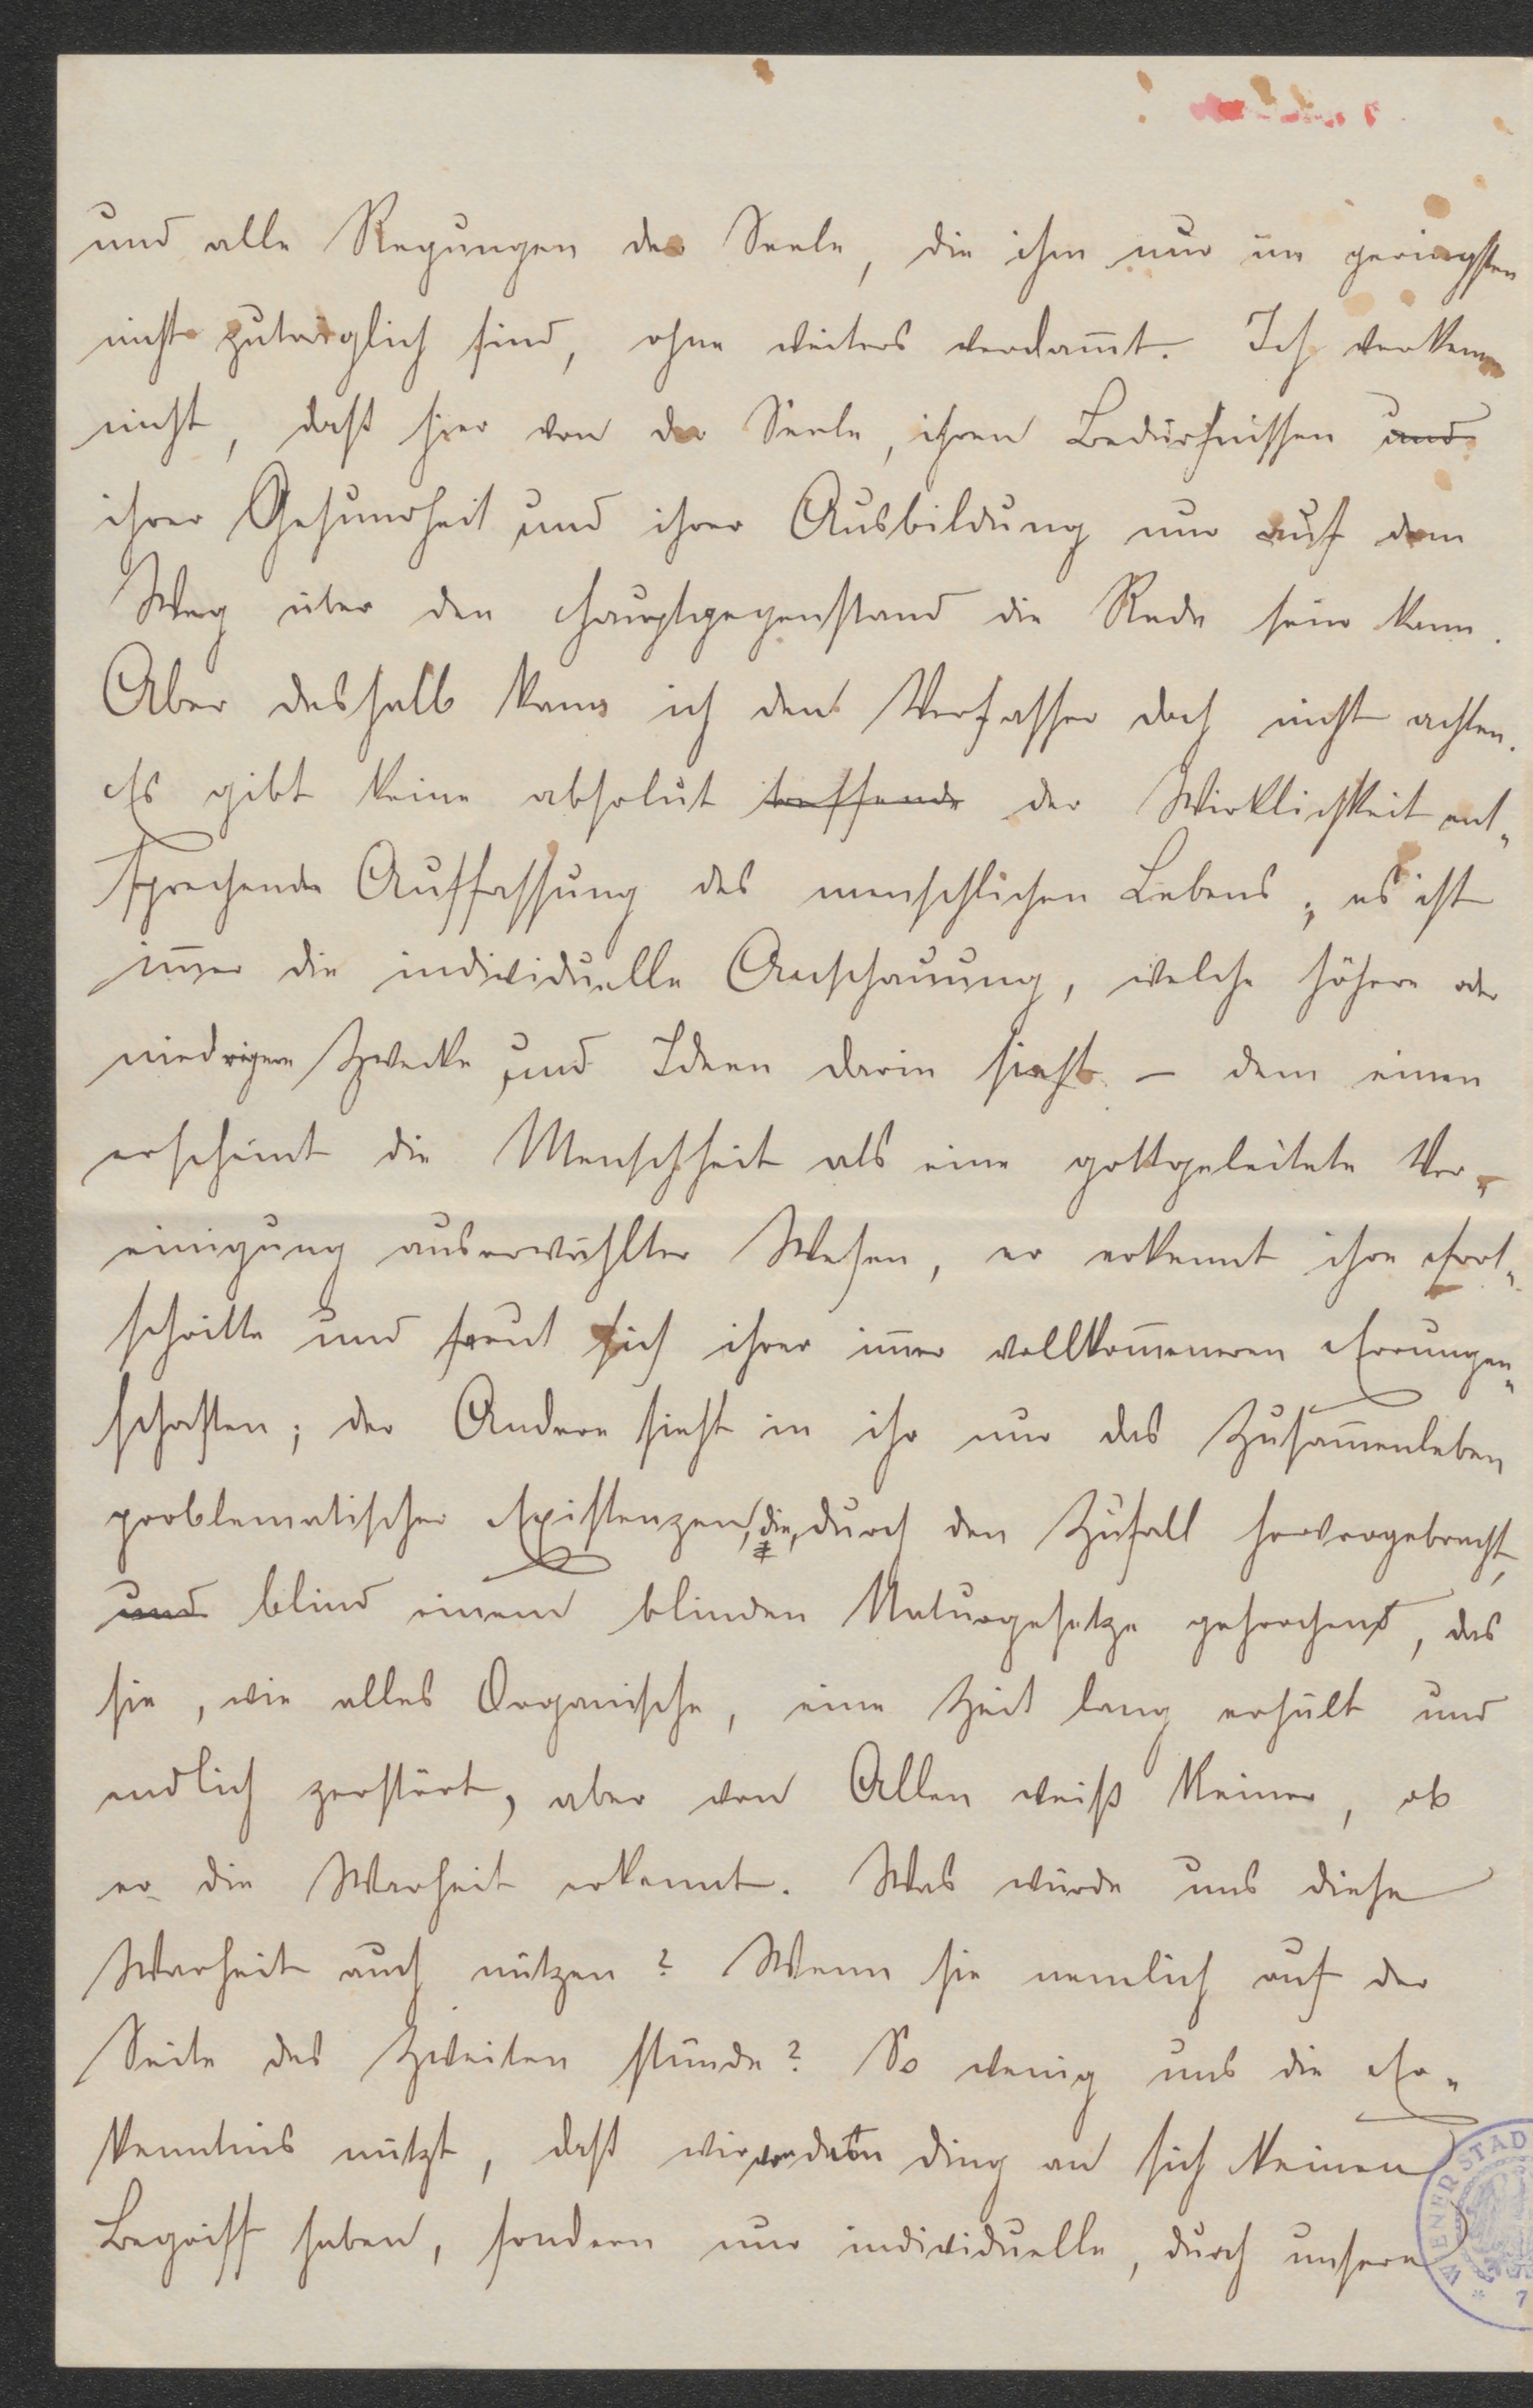 und alle Regungen der Seele, die ihm nur im geringsten
nicht zuträglich sind, ohne weiters verdam̄t. Ich verkenne
nicht, daß hier von der Seele, ihren Bedürfnissen und
ihrer Gesundheit und ihrer Ausbildung nur auf dem
Weg über den Hauptgegenstand die Rede sein kann.
Aber deshalb kann ich den Verfasser doch nicht achten.
Es gibt keine absolut treffende der Wirklichkeit ent„
sprechende Auffassung des menschlichen Lebens; es ist
im̄er die individuelle Anschauung, welche höhere oder
niedrigere Zwecke und Ideen darin sieht – dem einen
erscheint die Menschheit als eine gottgeleitete Ver„
einigung auserwählter Wesen, er erkennt ihre Fort„
schritte und freut sich ihrer im̄er vollkom̄eneren Errungen„
schaften; der Andere sieht in ihr nur das Zusam̄enleben
problematischer Existenzen, die, durch den Zufall hervorgebracht,
und blind einem blinden Naturgesetze gehorchend, das
sie, wie alles Organische, eine Zeit lang erhält und
endlich zerstört, aber von Allen weiß Keiner, ob
er die Warheit erkennt. Was würde uns diese
Warheit auch nützen? Wenn sie nemlich auf der
Seite des Zweiten stünde? So wenig uns die Er„
kenntnis nützt, daß wir von dem Ding an sich keinen
Begriff haben, sondern nur individuelle, durch unsere
WIENER STAD